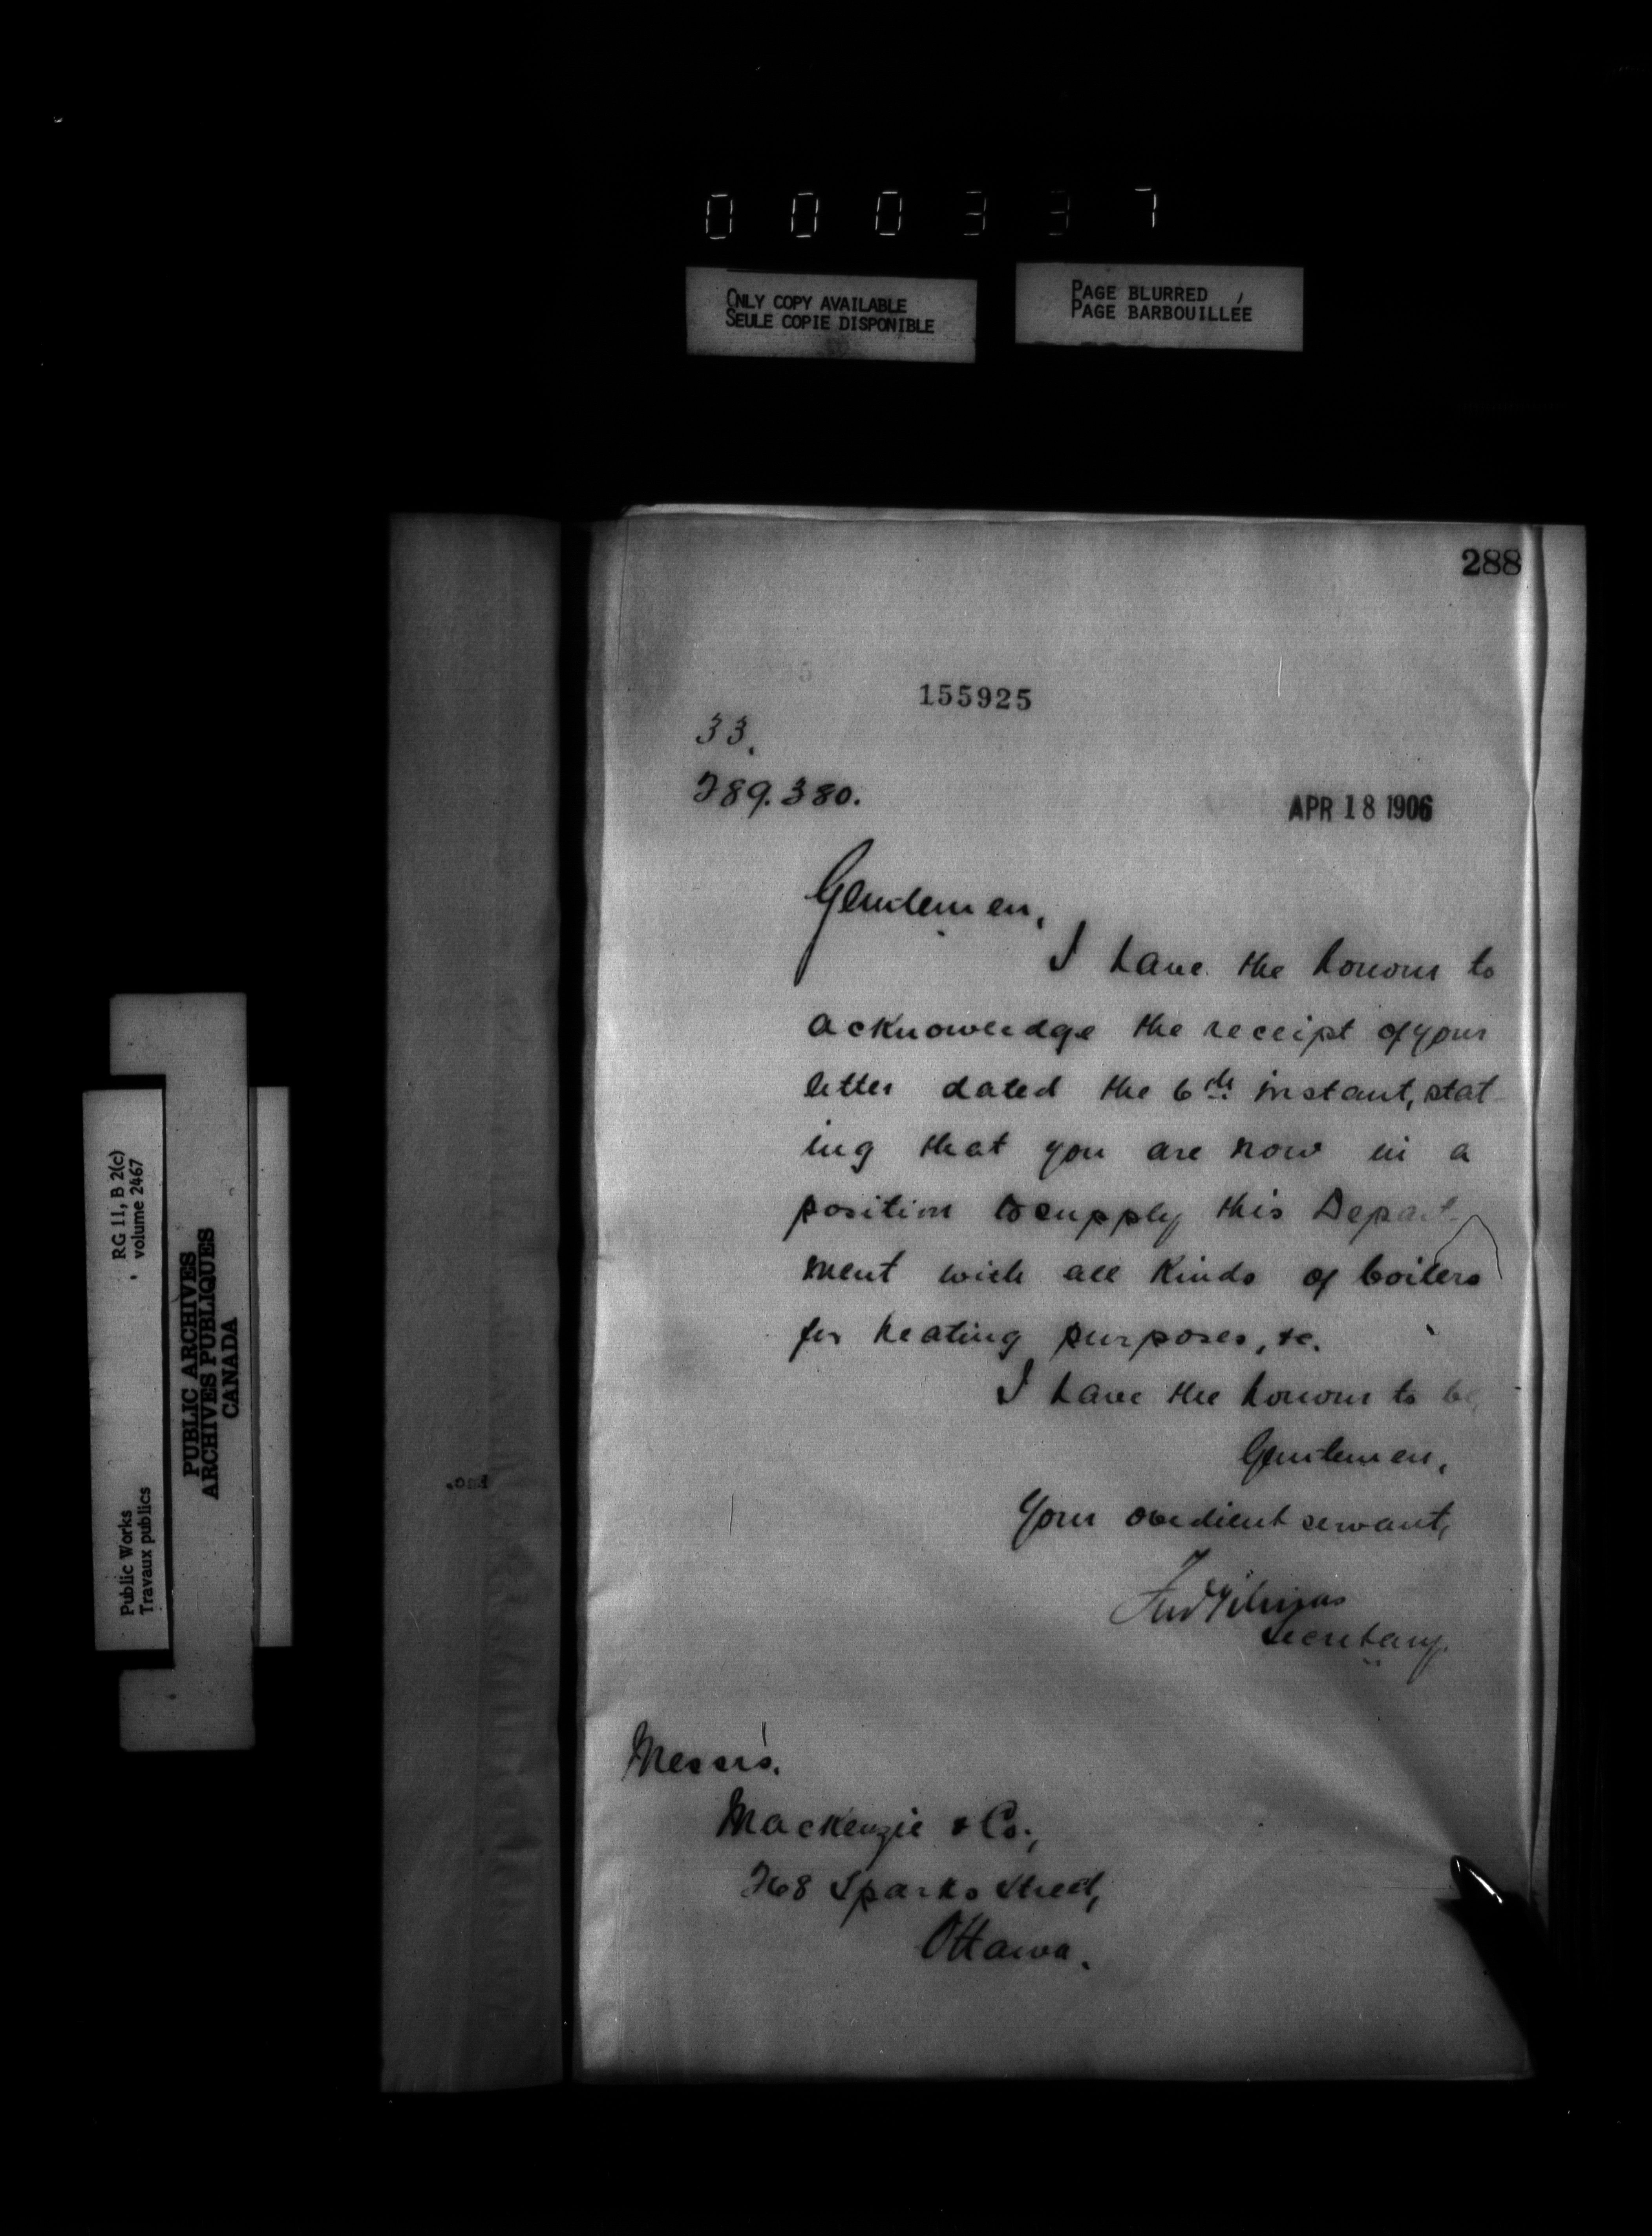 000337
ONLY COPY AVAILABLE
SEULE COPIE DISPONIBLE
PAGE BLURRED
PAGE BARBOUILLÉE
RG 11, B 2(c)
volume 2467
PUBLIC ARCHIVES
ARCHIVES PUBLIQUES
CANADA
Public Works
Travaux publics
288
155925
33.
289.380.
APR 18 1906
Gentlemen,
I have the honour to
acknowledge the receipt of your
letter dated the 6th instant, stat-
ing that you are now in a
position to supply this Depart-
ment with all kinds of boilers
for heating purposes, &c.
I have the honour to be,
Gentlemen,
Your obedient servant,
Secretary.
Messrs.
Mackenzie & Co.,
268 Sparks Street,
Ottawa.